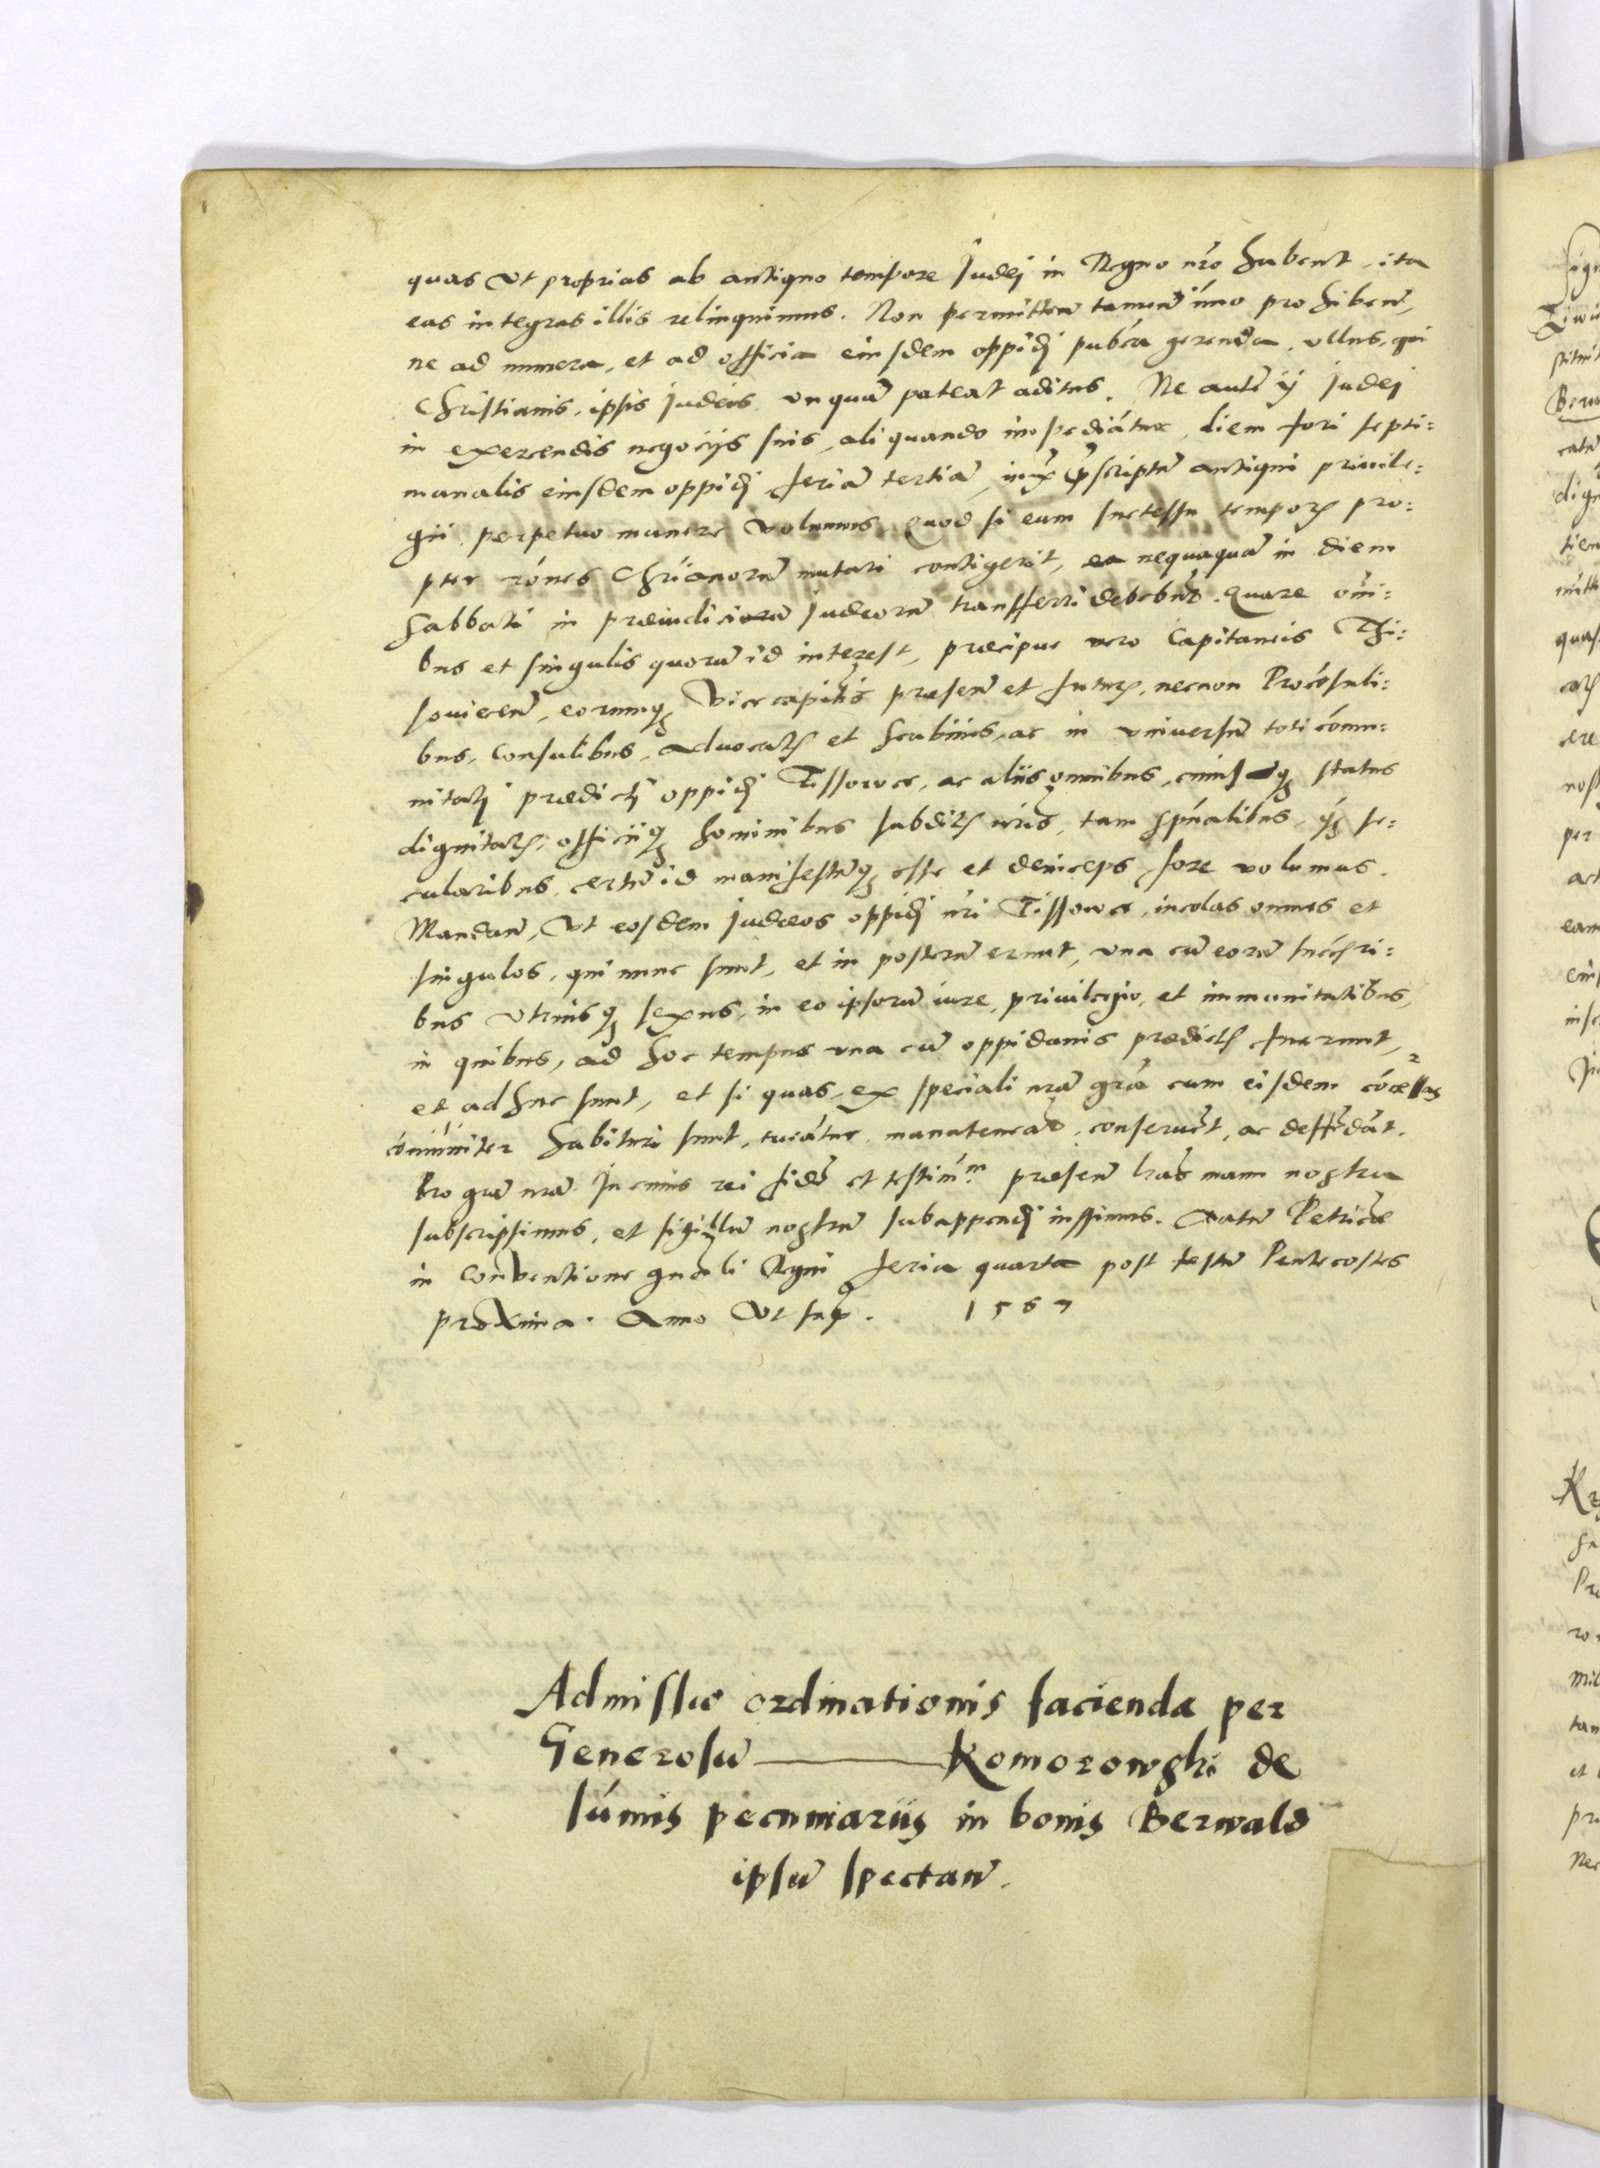 quas vt proprias ab antiquo tempore Judej in Regno nro habent, ita
eas integras illis relinquimus. Non permitten tamen imo prohiben,
ne ad munera, et ad officia eiusdem oppidj pubca gerenda, vllus, qui
Christianis, ipsis Judeis vnquã pateat aditus. Ne autẽ ij Judej
in exercendis negocijs suis, aliquando impediãtur, diem fori septi=
manalis eiusdem oppidj feriã tertiã, iuxta pscriptũ antiqui priuile=
gii perpetuo manere volumus. Quod si eum successu temporis pro=
pter rones Chrianorũ mutari contigerit, nequaquã in diem
sabbati in præiudicium Judeorũ transfferri debebit. Quare omi=
bus et singulis quorũ id interest, præcipue vero Capitaneis Thi=
souicen, eorumq Vicecapitis presen et futuris, necnon Procõsuli=
bus, Consulibus, Aduocatis et Scabinis, ac in vniuersũ toti cõmu=
nitati prædicti oppidj Tissowce, ac aliis omnibus, cuiusq status
dignitatis, officiiq hominibus subditis nris, tam spũalibus, q̃ se=
cularibus, certũ id manifestũq esse et deinceps fore volumus.
Mandan, Vt eosdem Judæos oppidj nri Tissowce, incolas omnes et
singulos, qui nunc sunt, et in posterũ erunt, vna cũ eorũ succri=
bus vtriusq sexus, in eo ipsorũ iure, priuilegio, et immunitatibus,
in quibus, ad hoc tempus vna cũ oppidanis prædictis fuerunt,
et adhuc sunt, et si quas, ex speciali nrã grã cum eisdem cõcessas
cõmuniter habituri sunt, tueãtur, manuteneãt, conseruẽt, ac deffẽdãt.
Pro grã nrã In cuius rei fidẽ et testimm presen lras manu nostra
subscripsimus, et sigillũ nostrũ subappendj iussimus. Datũ Petricouiæ
in Conuentione gnali Regni feria quarta post festũ Pentecostes
proxima. Anno Vt supra. 1567
Admissio ordinationis faciendæ per
Generosũ Komorowski de
sũmis pecuniariis in bonis Berwald
ipsũ spectan.